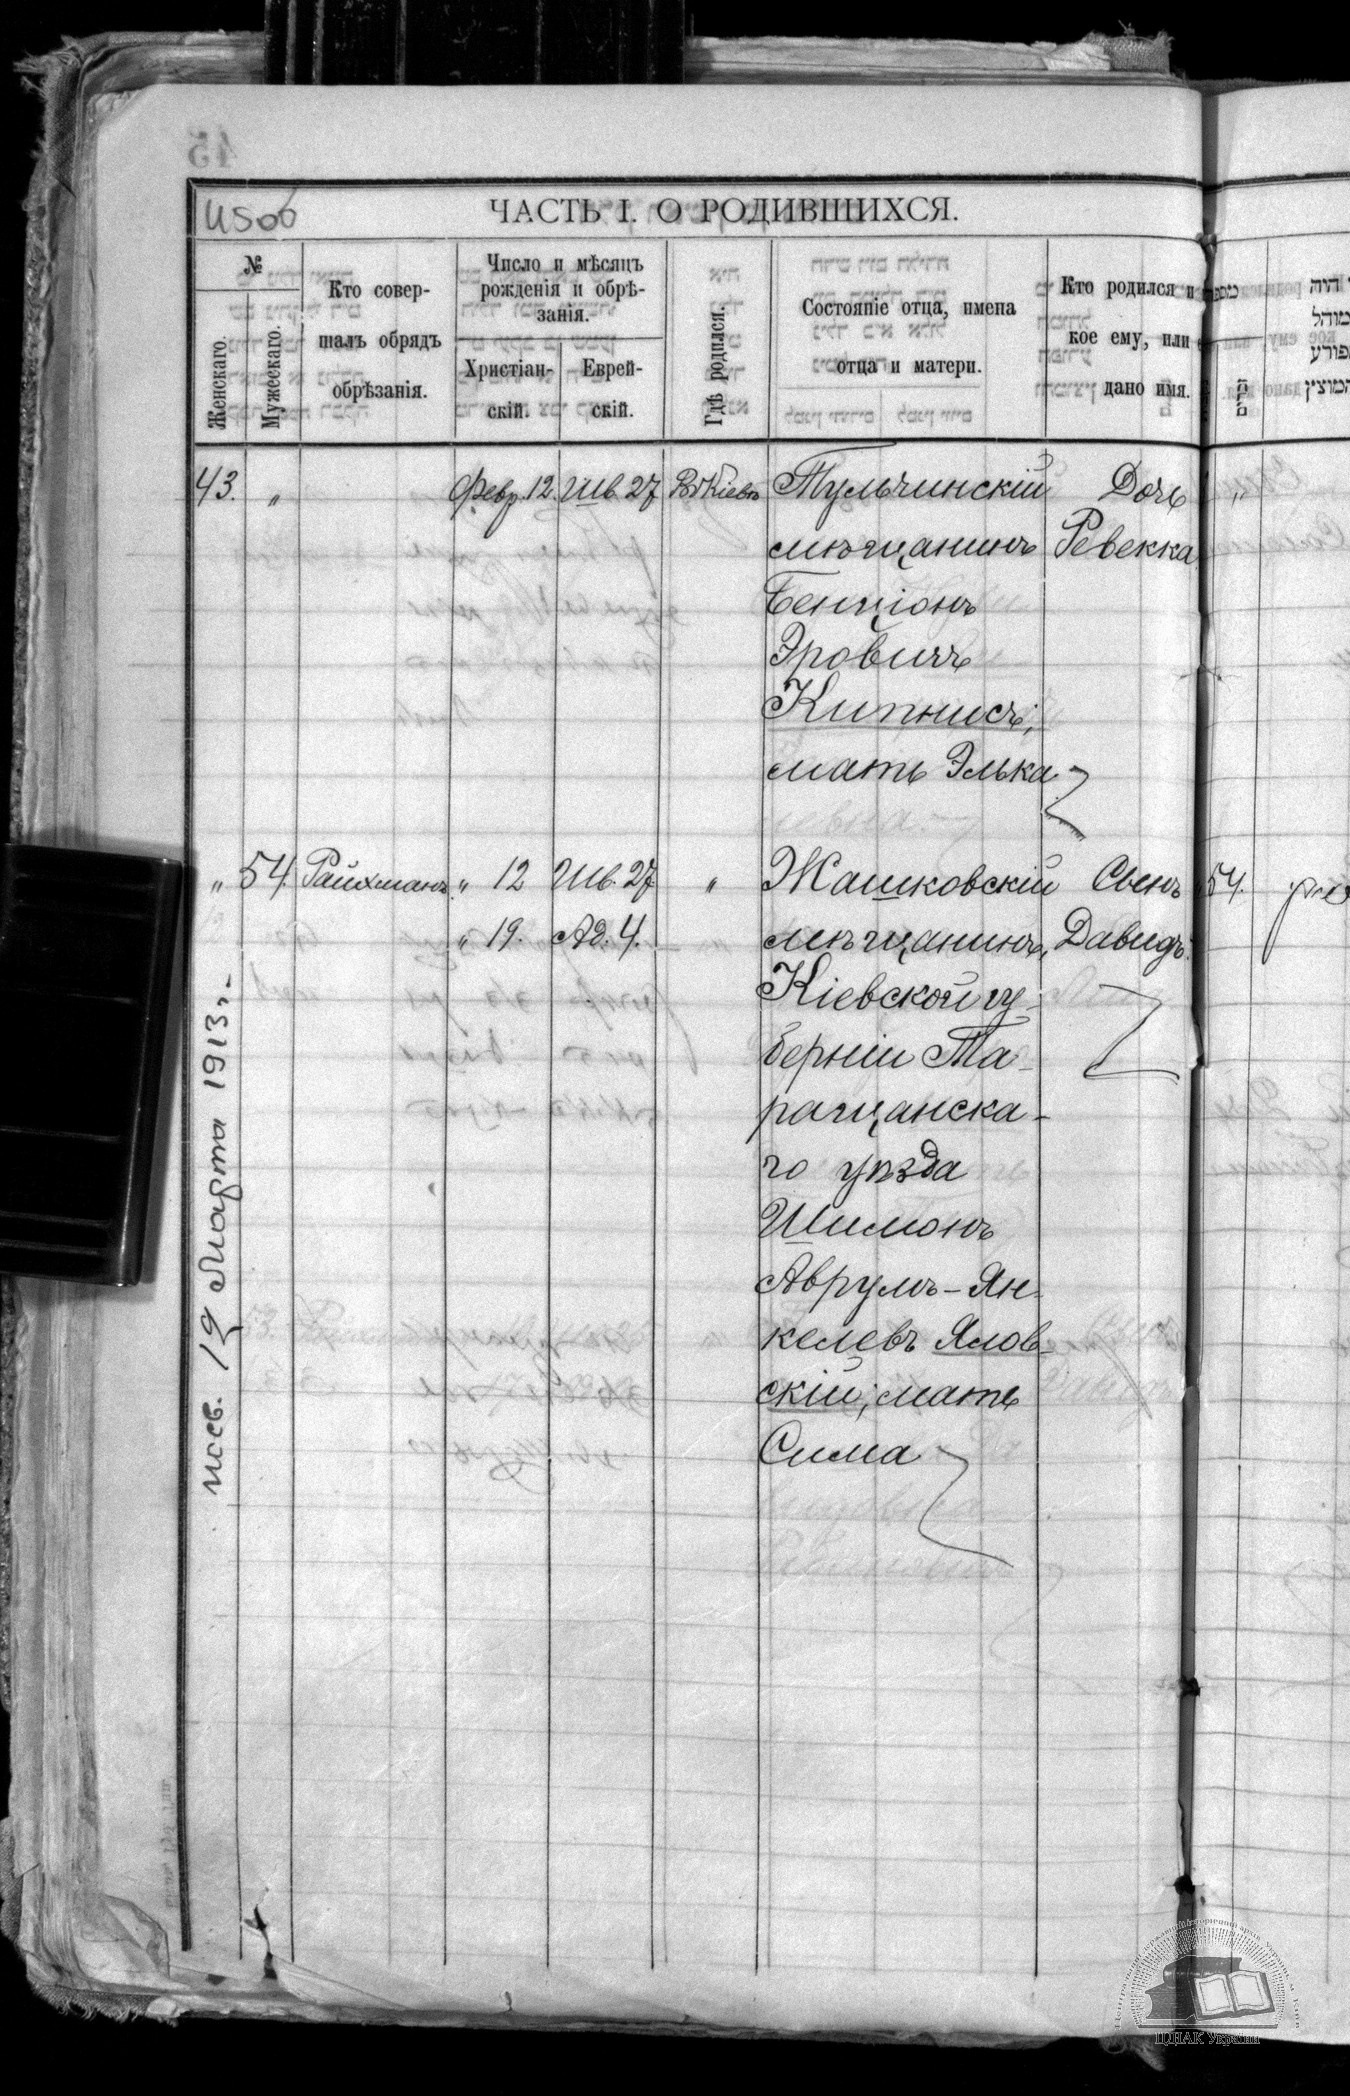 45об
ЧАСТЬ I. О РОДИВШИХСЯ.
№
Женскаго.
Мужескаго.
Кто совер-
шалъ обрядъ
обрѣзанія.
Число и мѣсяцъ
рожденія и обрѣ-
занія.
Христіан-
скій.
Еврей-
скій.
Гдѣ родился.
Состояніе отца, имена
отца и матери.
Кто родился и
кое ему, или
дано имя.
43. " Февр. 12 Шв. 27 Въ Кіевѣ Тульчинскій Дочь
мѣщанинъ Ревекка
Бенціонъ
Эровичъ
Кипнисъ;
мать Элька
" 54. Райхманъ " 12 Шв. 27 " Жашковскій Сынъ 54.
" 19. Ад. 4. мѣщанинъ, Давидъ.
Кіевской гу-
берніи Та-
ращанска-
го уѣзда
Шимонъ
Аврумъ-Ян-
келевъ Ялов
скій; мать
Сима
19 Марта 1913 г.
ЦДІАК України